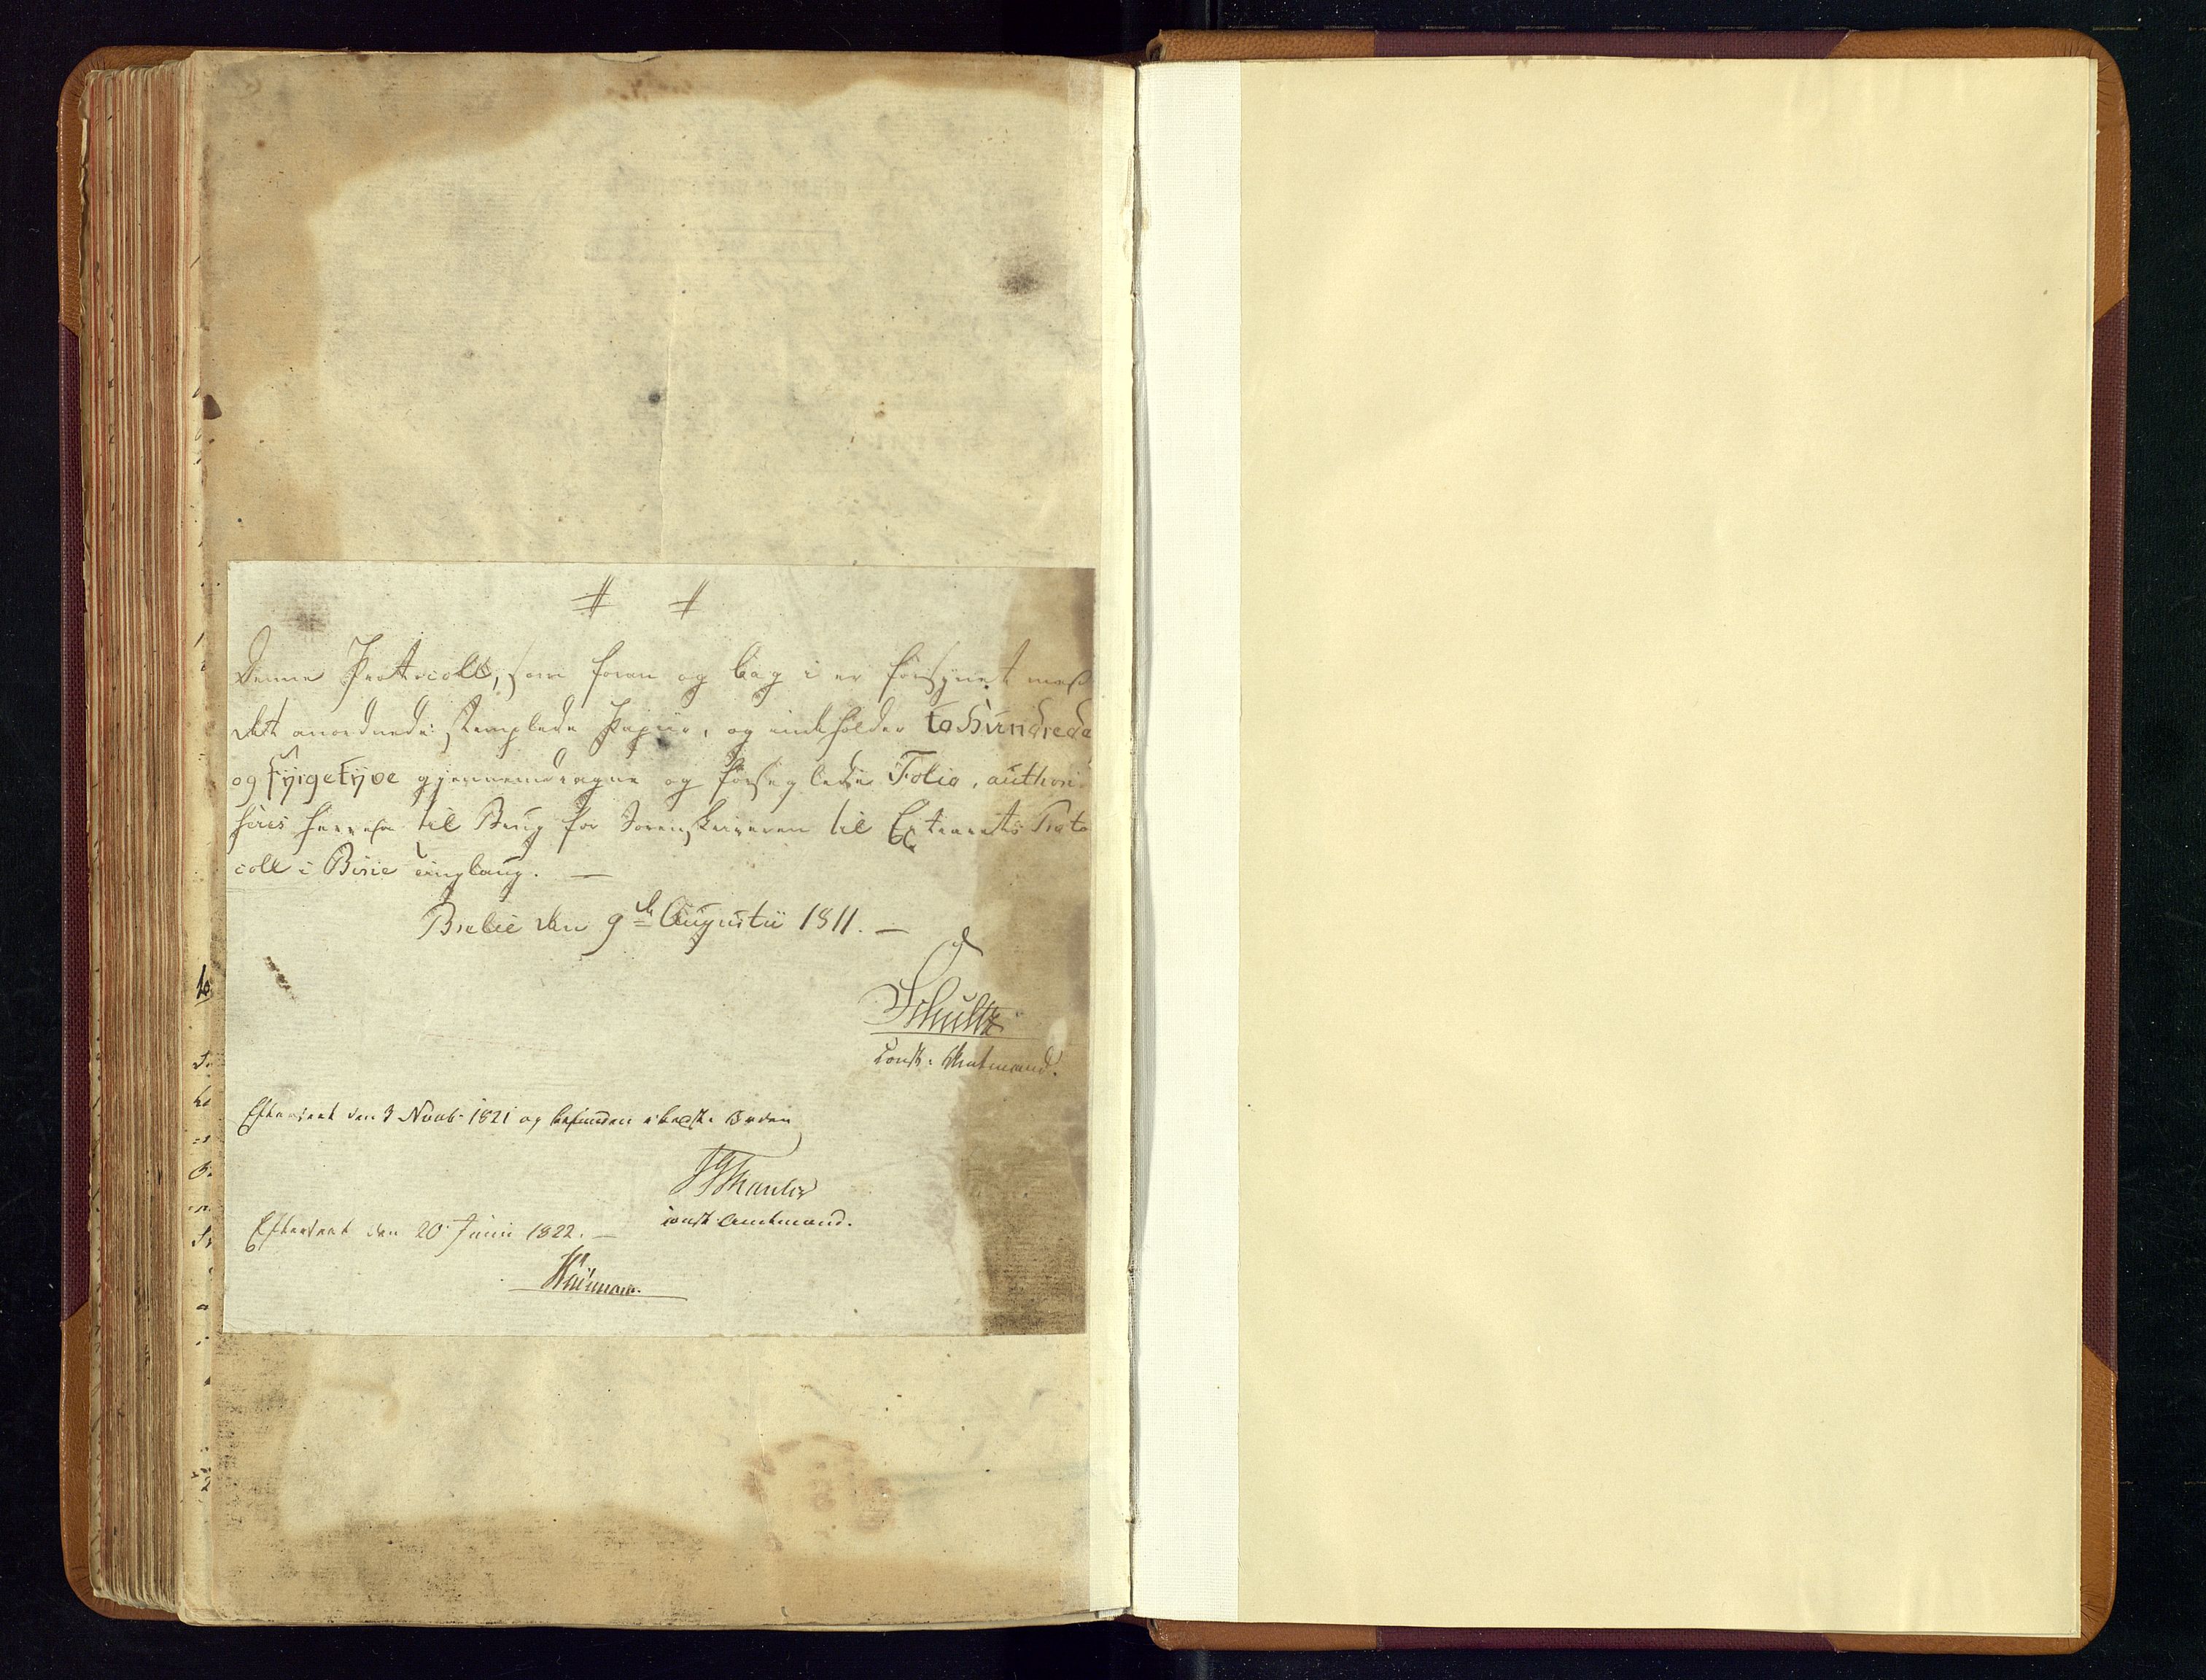 Denne Protocoll, som foran og bag i er forsynet med
det anordnede stemplede Papiir, og indeholder to Hundrede
og fyrgetyve gjennemdragne og forseglede Folio, authori-
seres herved til Brug for Sorenskriveren til Extraretts Proto
coll i Birie Tinglaug. —
den 9de Augustii 1811. —
Schultz
const: Amtmand.
Efterseet den 3 Novb. 1821 og befunden i beste Orden
const. Amtmand.
Efterseet den 20 Junii 1822. —